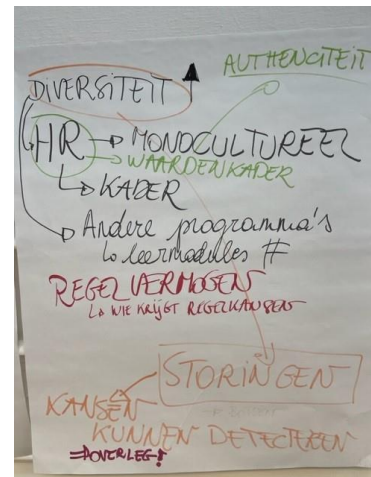 AUTHENCITEIT
DIVERSITEIT
HR → MONOCULTUREEL
→ WAARDENKADER
↳ KADER
Andere programma's
↳ leermodules #
REGELVERMOGEN
↳ WIE KRIJGT REGELKANSEN
STORINGEN
KANSEN
KUNNEN DETECTEREN
⇒ OVERLEG!